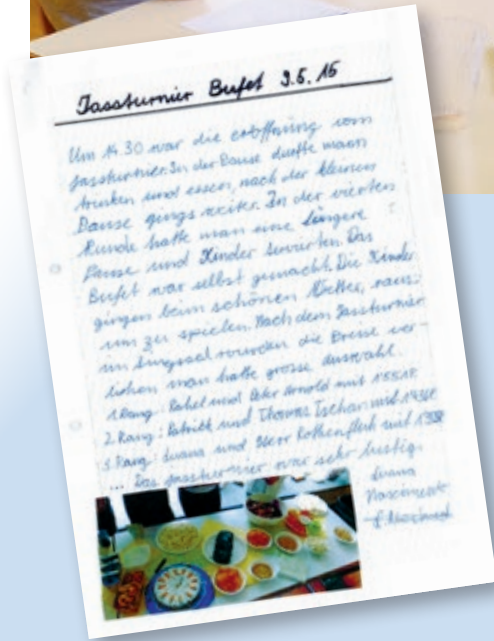 Jassturnier Bufet 9.5.15
Um 14.30 war die eröffnung vom
Jassturnier. In der Pause durfte mann
trinken und essen, nach der kleinen
Pause gings weiter. In der vierten
Runde hatte man eine längere
Pause und Kinder servierten. Das
Bufet war selbst gemacht. Die Kinder
gingen beim schönen Wetter, raus
um zu spielen. Nach dem Jassturnier
im wurden die Preise ver-
liehen man hatte grosse auswahl.
1. Rang: Rahel und Peter Arnold mit
2. Rang: Patrick und Thomas Tschan mit
3. Rang: Luana und Herr Rothenfluh mit
... Das Jassturnier war sehr lustig.
Luana
Nascimento